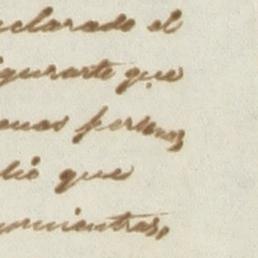 eclarado el
igurarte que
enas personas
lió que
mientras,